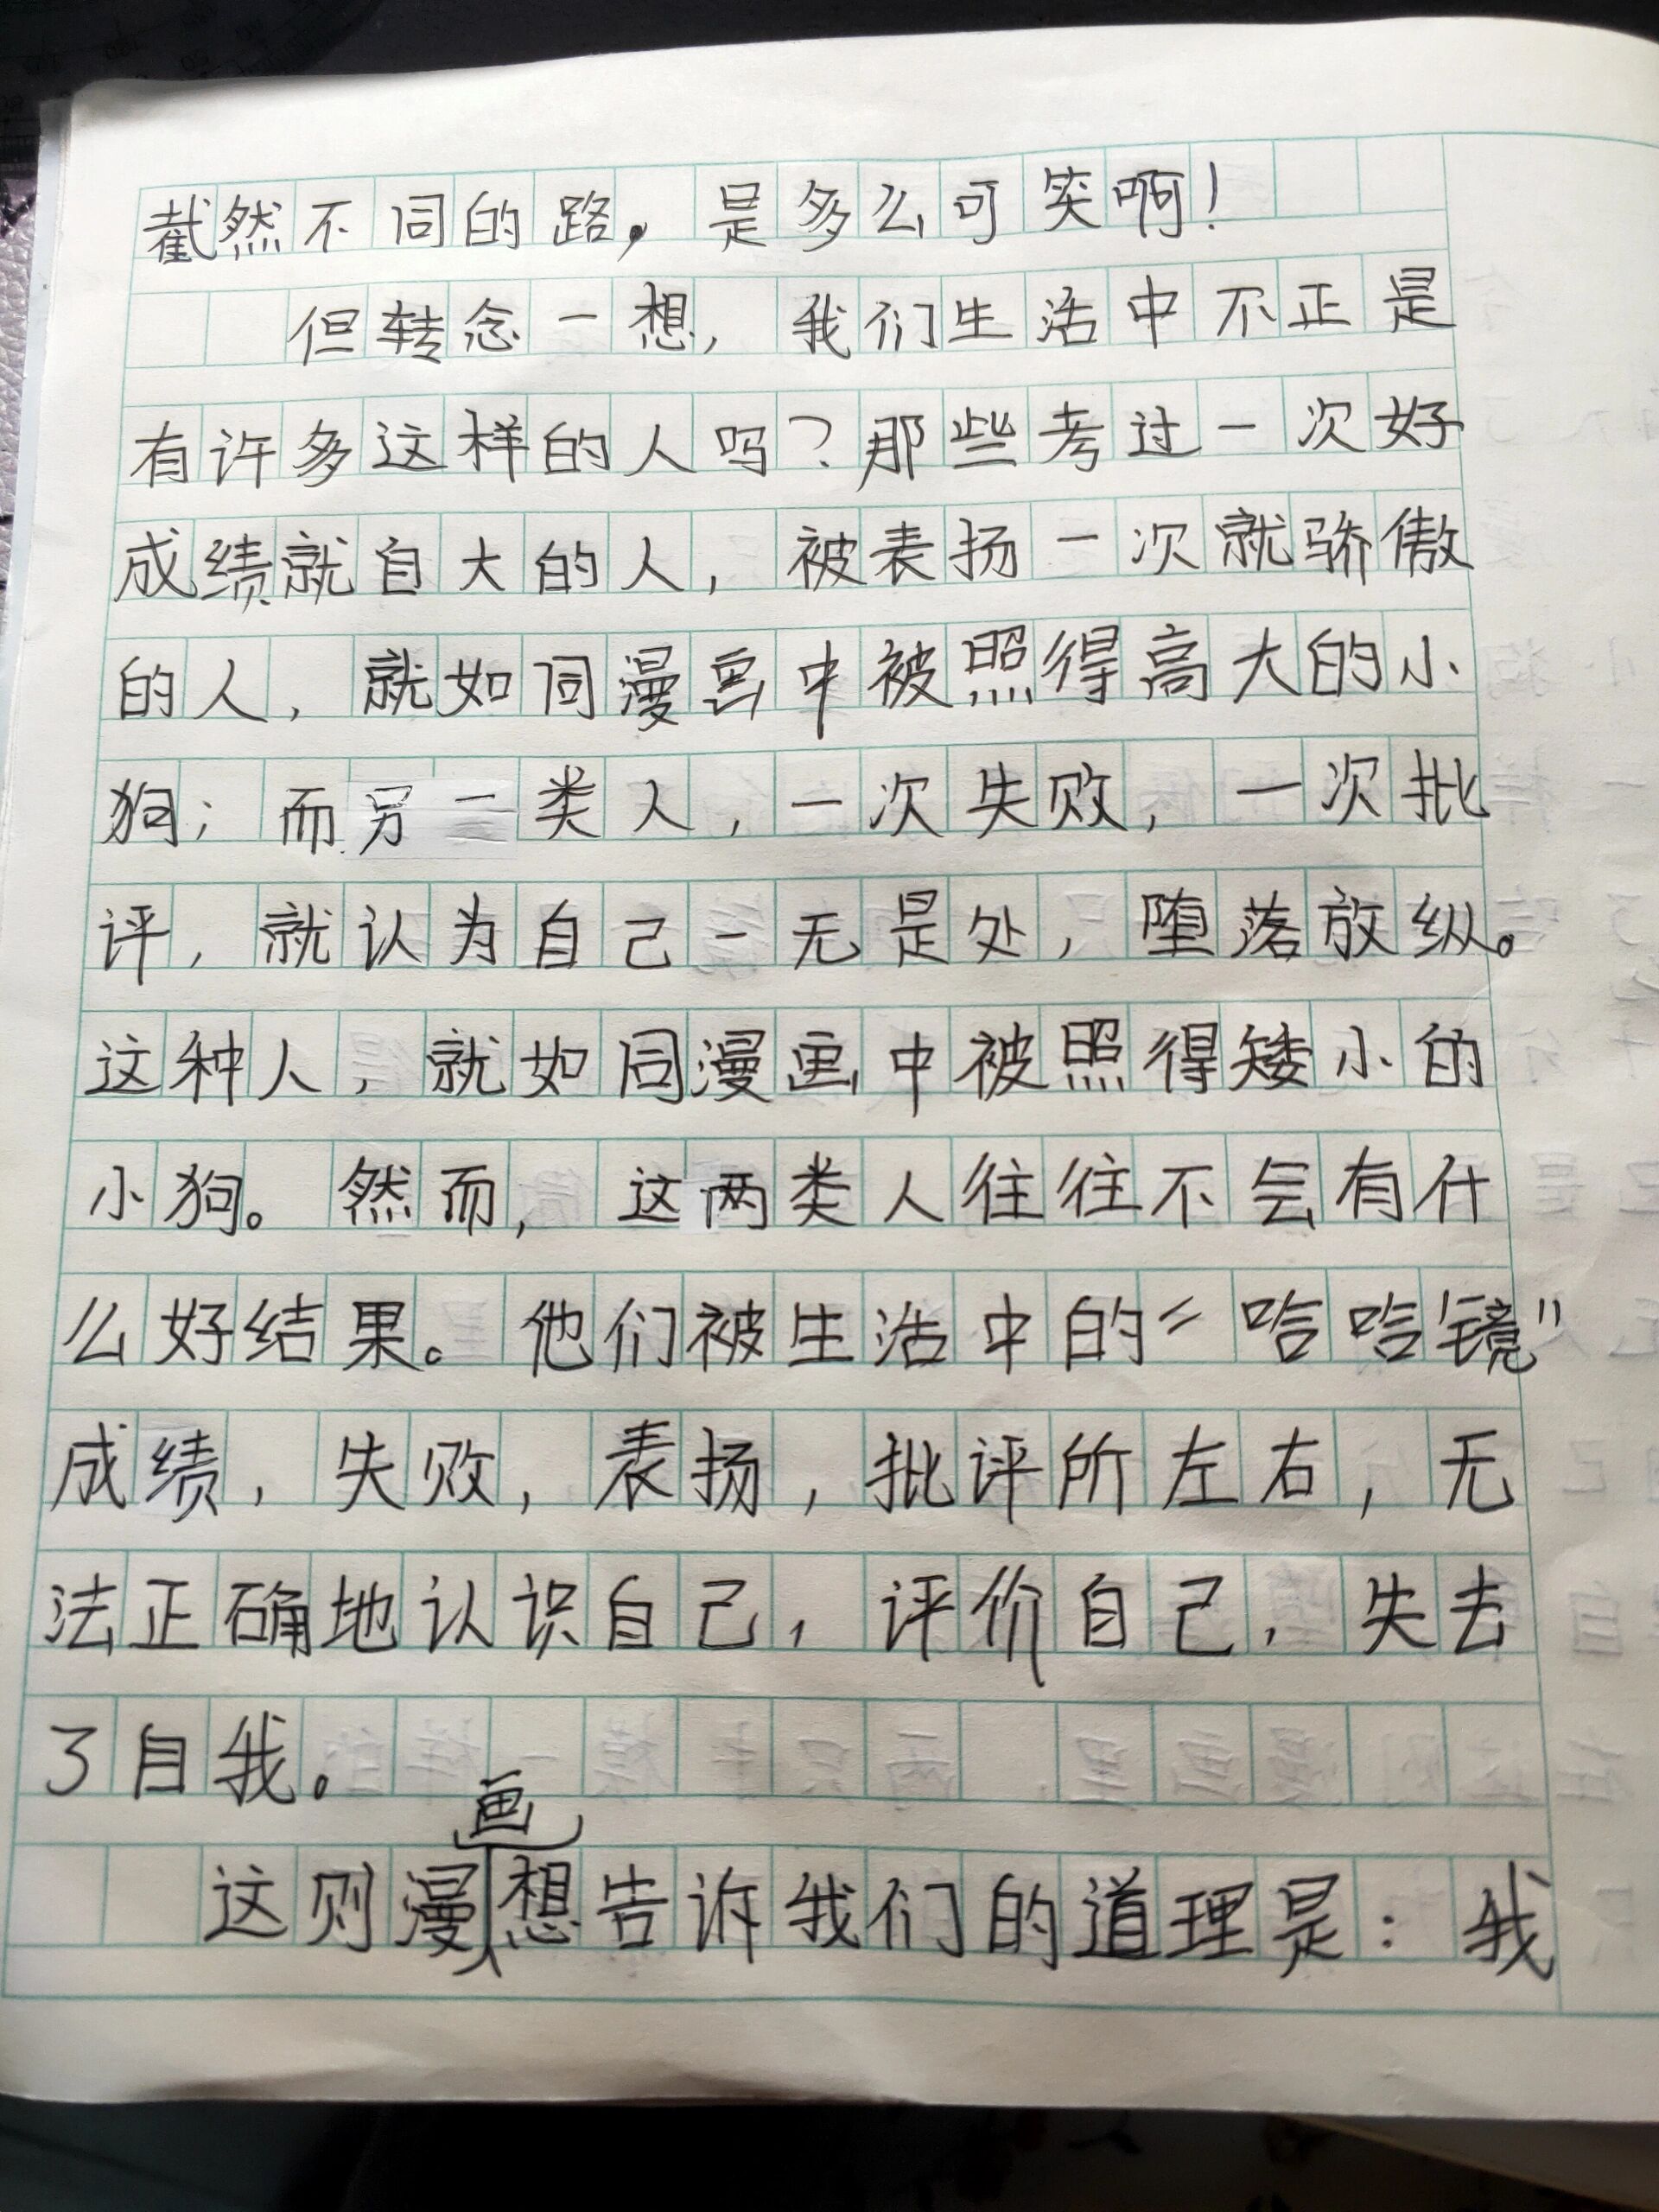 截然不同的路，是多么可笑啊！
但转念一想，我们生活中不正是
有许多这样的人吗？那些考过一次好
成绩就自大的人，被表扬一次就骄傲
的人，就如同漫画中被照得高大的小
狗；而另一类人，一次失败，一次批
评，就认为自己一无是处，堕落放纵。
这种人，就如同漫画中被照得矮小的
小狗。然而，这两类人往往不会有什
么好结果。他们被生活中的“哈哈镜”
成绩，失败，表扬，批评所左右，无
法正确地认识自己，评价自己，失去
了自我。
画
这则漫想告诉我们的道理是：我